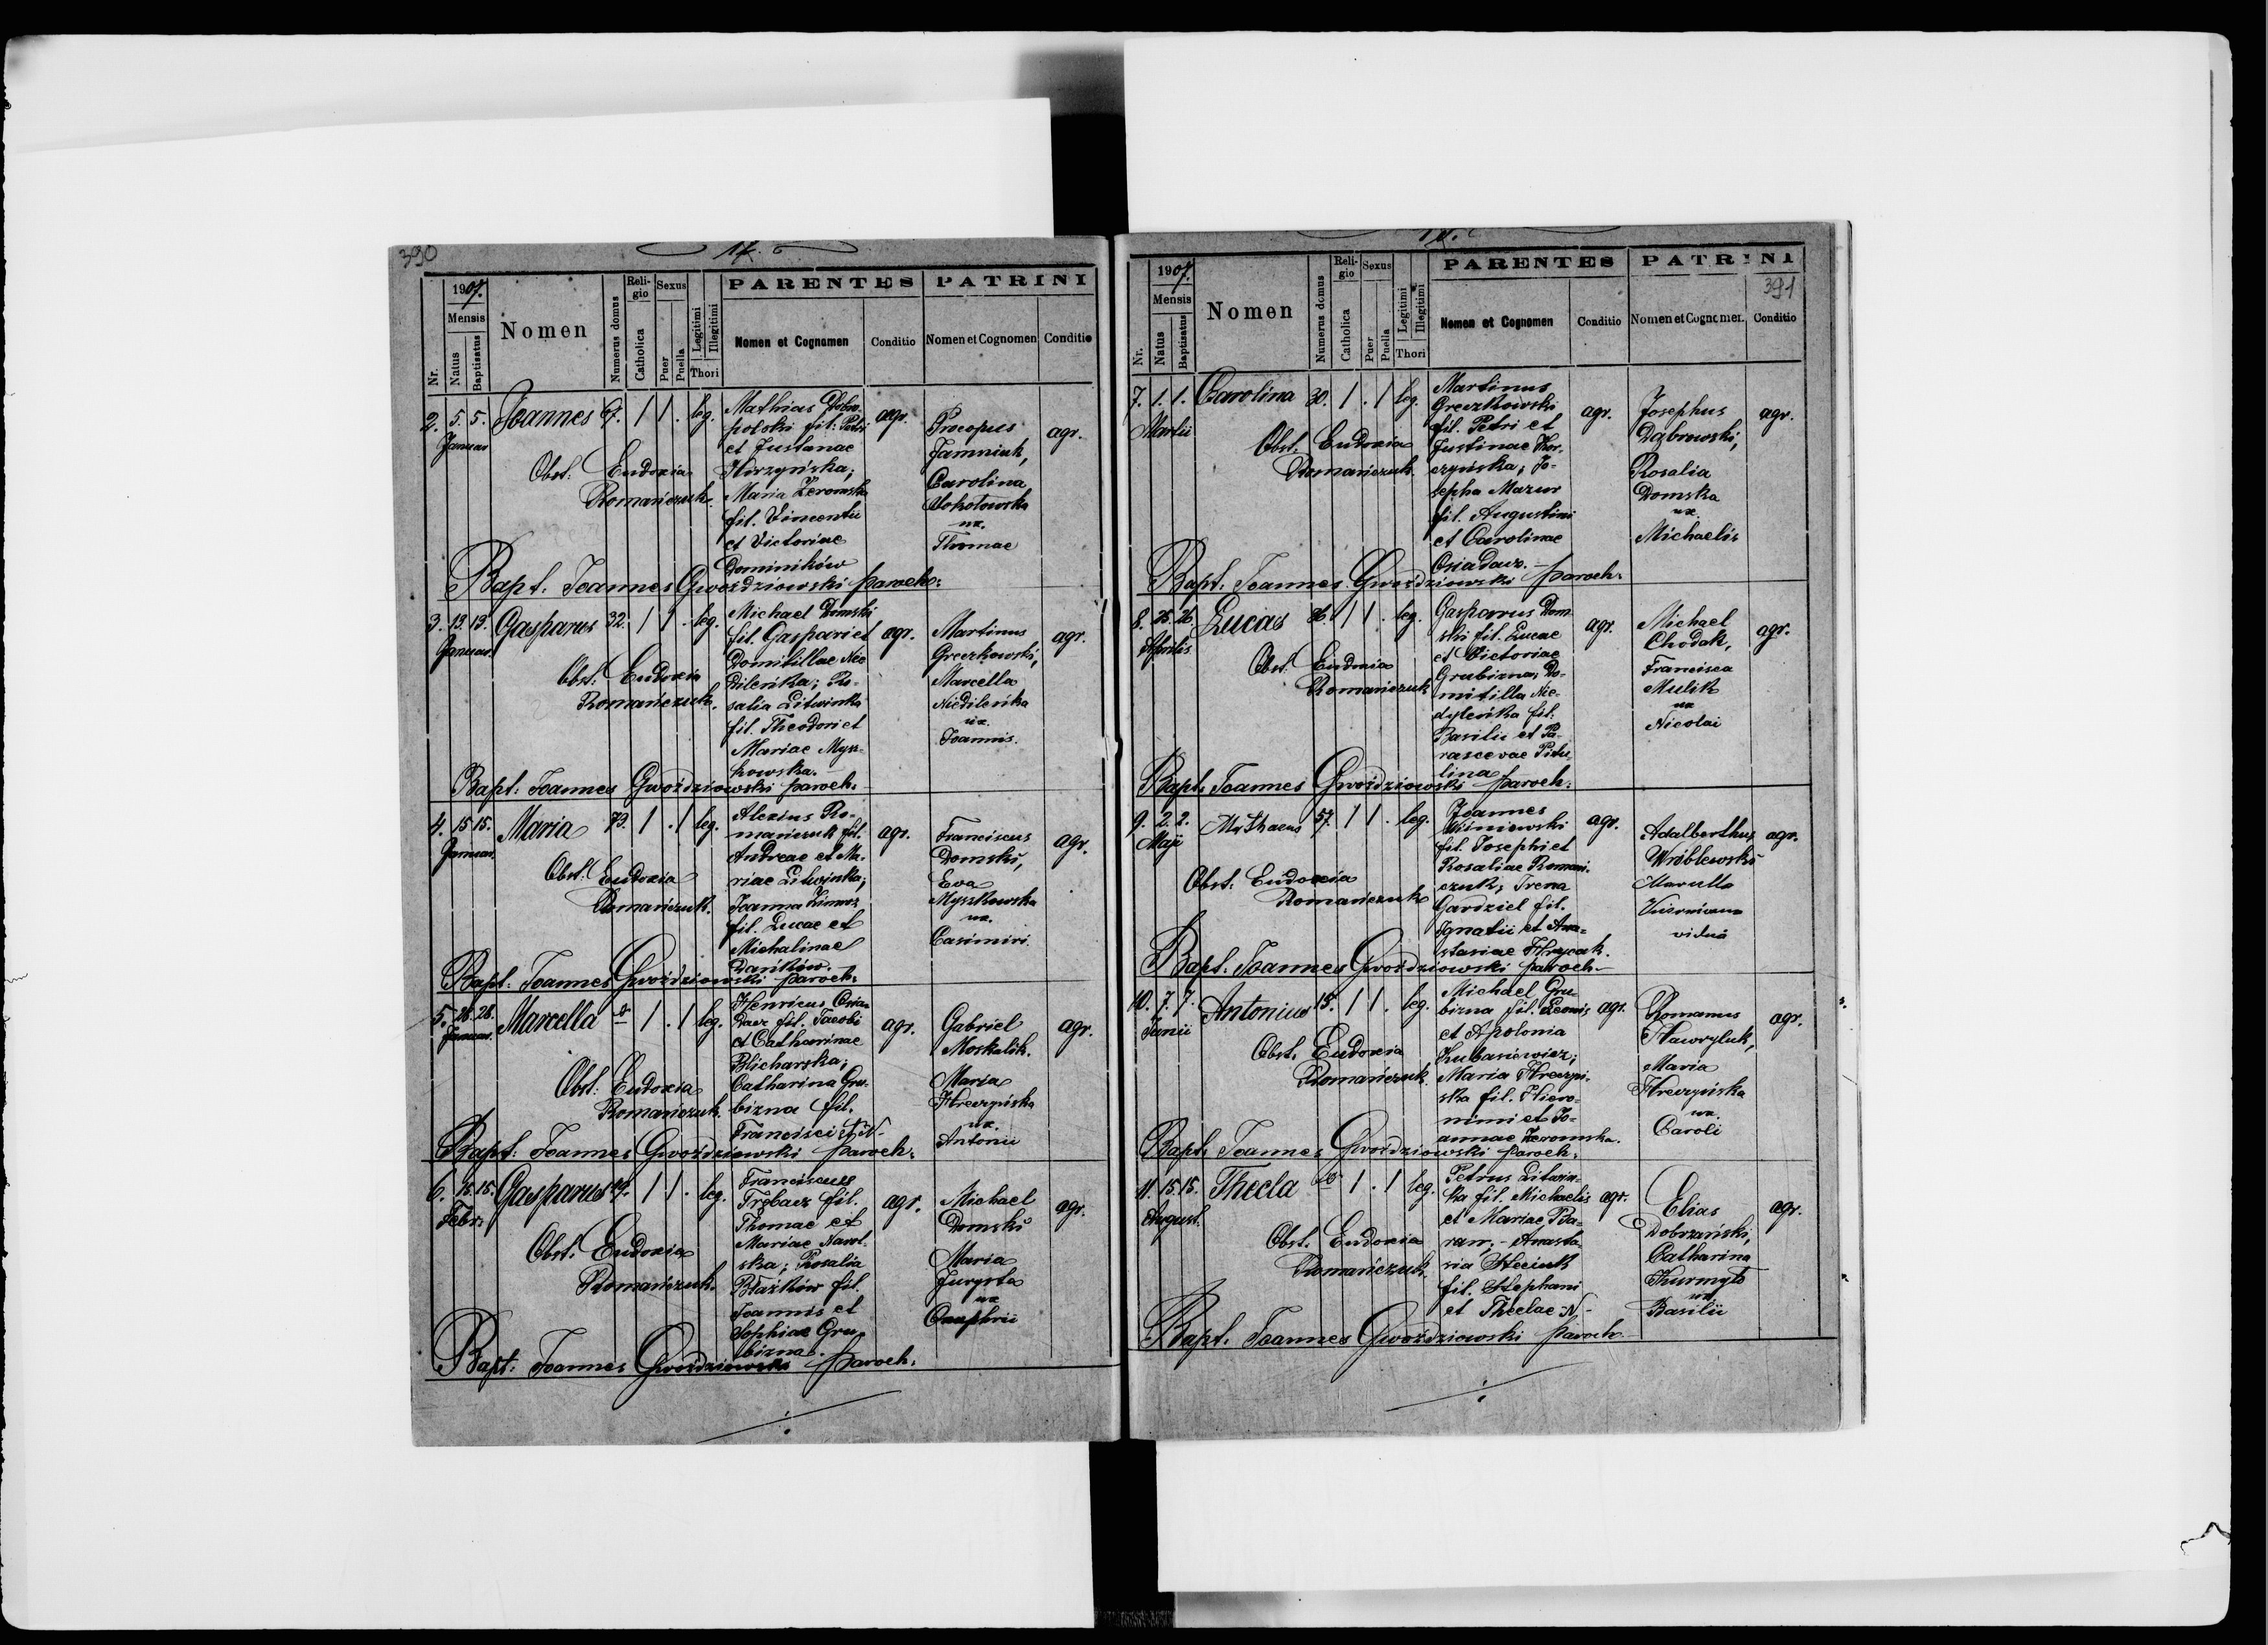 390
17.
1907.
Mensis
Nr.
Natus
Baptisatus
Nomen
Numerus domus
Religio
Catholica
Sexus
Puer
Puella
Legitimi
Illegitimi
Thori
PARENTES
Nomen et Cognomen
Conditio
PATRINI
Nomen et Cognomen
Conditio
2. 5. 5. Joannes 67. 1 1 . leg.
Januar
Obst: Eudoxia
Romańczuk.
Mathias Dobro-
polski fil: Petri
et Justanae
Horzyńska;
Maria Żeromska
fil. Vincentii
et Victoriae
Dominików
agr.
Procopus
Jamniuk,
Carolina
Sokołowska
ux.
Thomae
agr.
Bapt. Joannes Gwoździowski paroch:
3. 13. 13. Gasparus 32. 1 1 . leg.
Januar.
Obst: Eudoxia
Romańczuk.
Michael Domski
fil. Gaspari et
Domitillae Nie
dileńka; Ro-
salia Litwinka
fil. Theodori et
Mariae Mysz-
kowska.
agr.
Martinus
Greczkowski,
Marcella
Niedileńka
ux.
Joannis.
agr.
Bapt: Joannes Gwoździowski paroch:
4. 15 15. Maria 73. 1 . 1 leg.
Januar.
Obst: Eudoxia
Romańczuk.
Alexius Ro-
mańczuk fil.
Andreae et Ma-
riae Litwinka;
Joanna
fil. Lucae et
Michalinae
Dańków.
agr.
Franciscus
Domski,
Eva
Myszkowska
ux.
Casimiri
agr.
Bapt: Joannes Gwoździowski paroch:
5. 28. 28. Marcella 1 . 1 leg.
Januar.
Obst: Eudoxia
Romańczuk.
Henricus Osia-
dacz fil. Jacobi
et Catharinae
Blicharska;
Catharina Gru-
bizna fil.
Francisci et N-
agr.
Gabriel
Moskalik.
Maria
Hreczyńska
ux.
Antonii
agr.
Bapt: Joannes Gwoździowski paroch:
6. 15. 15. Gasparus 1 1 . leg.
Febr:
Obst: Eudoxia
Romańczuk.
Franciscus
Trębacz fil.
Thomae et
Mariae Narol-
ska; Rosalia
Błażków fil.
Joannis et
Sophiae Gru-
bizna.
agr.
Michael
Domski
Maria
Jurysta
ux
Onuphrii
agr.
Bapt: Joannes Gwoździowski paroch:
18.
1907.
Mensis
Nr.
Natus
Baptisatus
Nomen
Numerus domus
Religio
Catholica
Sexus
Puer
Puella
Legitimi
Illegitimi
Thori
PARENTES
Nomen et Cognomen
Conditio
PATRINI
391
Nomen et Cognomen.
Conditio
7. 1. 1. Carolina 30. 1 . 1 leg.
Martii
Obst: Eudoxia
Romańczuk
Martinus
Greczkowski
fil. Petri et
Justinae Hor-
czyńska; Jo-
sepha Mazur
fil. Augustini
et Carolinae
Osiadacz.-
agr.
Josephus
Dąbrowski,
Rosalia
Domska
ux.
Michaelis
agr.
Bapt. Joannes Gwoździowski paroch:
8. 25. 26. Lucas 86. 1 1 . leg.
Aprilis
Obst: Eudoxia
Romańczuk
Gasparus Dom-
ski fil. Lucae
et Victoriae
Grubizna; Do-
mitilla Nie-
dyleńka fil:
Basilii et Pa-
rascevae Pitu-
lina
agr.
Michael
Chodak,
Francisca
Mulik
ux
Nicolai
agr.
Bapt: Joannes Gwoździowski paroch:
9. 2. 2. Mathaeus 57. 1 1 . leg.
Maji
Obst: Eudoxia
Romańczuk
Joannes
Wiśniewski
fil. Josephi et
Rosaliae Romań-
czuk; Irena
Gardziel fil.
Ignatii et Ana-
stasiae Hrycak.
agr.
Adalberthus
Wróblewski
Marcella
vidua
agr.
Bapt. Joannes Gwoździowski paroch-
10. 7. 7. Antonius 15. 1 1 . leg.
Junii
Obst. Eudoxia
Romańczuk.
Michael Gru-
bizna fil. Leonis
et Apolonia
Kubasiewicz;
Maria Hreczyń-
ska fil. Hiero-
nimi et Jo-
annae Żeromska.
agr.
Romanus
Hawryluk,
Maria
Hreczyńska
ux.
Caroli
agr.
Bapt: Joannes Gwoździowski paroch:
11. 15. 15. Thecla 1 . 1 leg.
August.
Obst. Eudoxia
Romańczuk.
Petrus Litwin-
ka fil. Michaelis
et Mariae Ba-
ran; - Anasta-
sia Steciuk
fil. Stephani
et Theclae N.-
agr.
Elias
Dobrzański,
Catharina
Kurmyło
ux.
Basilii
agr.
Bapt. Joannes Gwoździowski paroch.